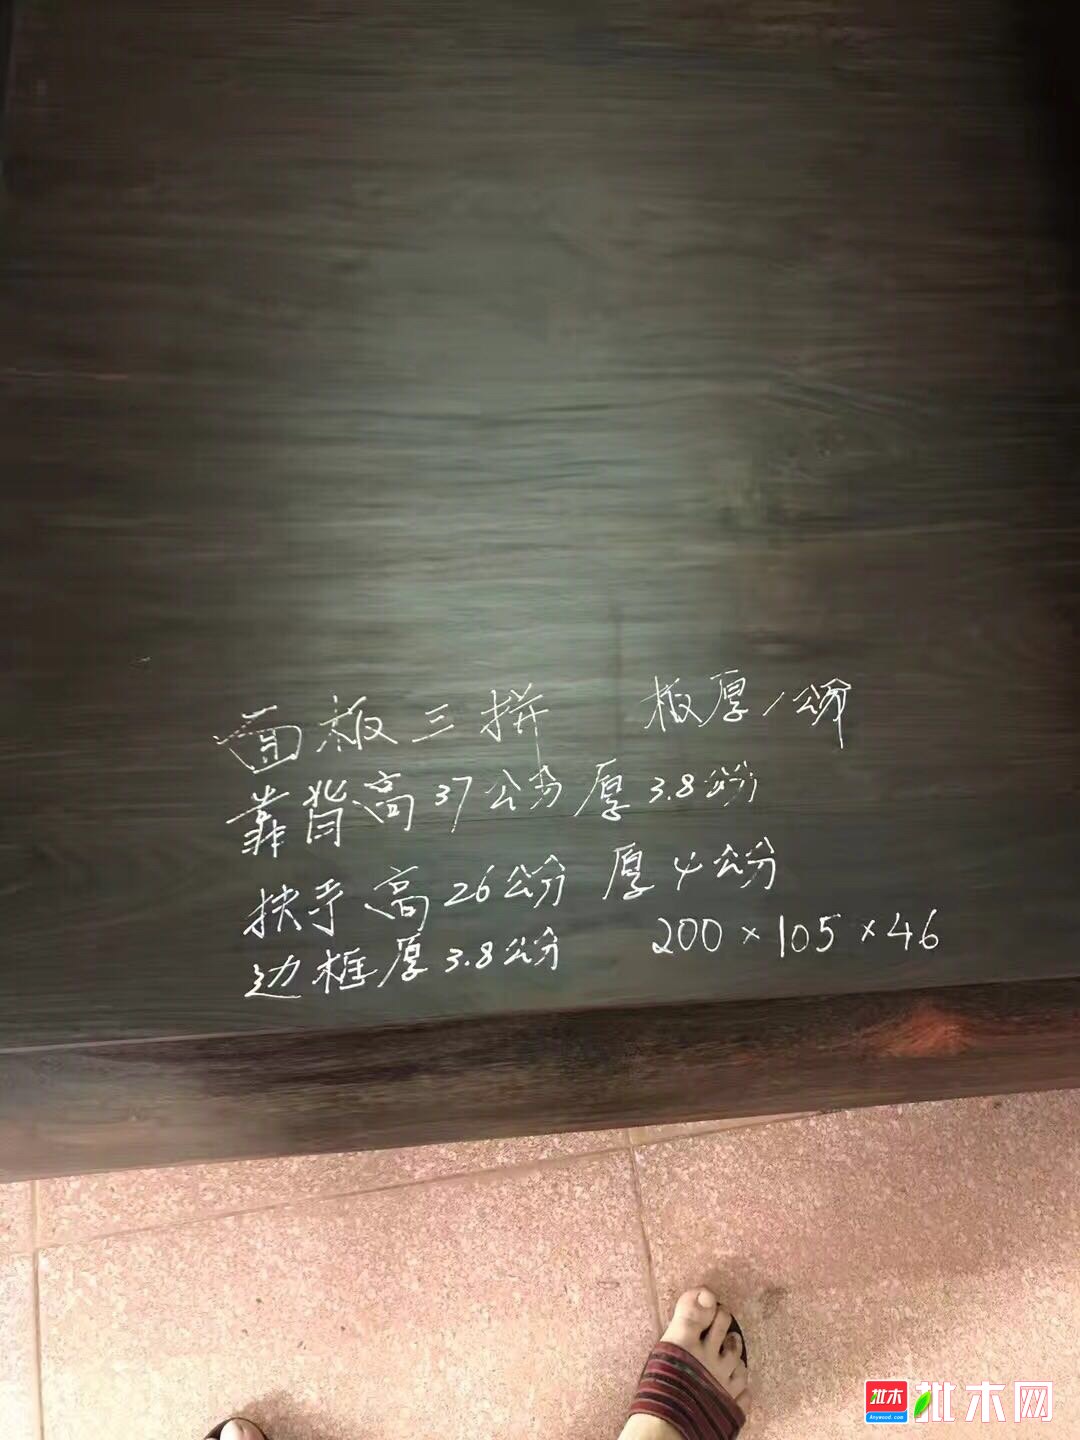 面板三拼 板厚1公分
靠背高37公分厚3.8公分
扶手高26公分 厚4公分
边框厚3.8公分 200×105×46
批木 批木网
Anywood.com